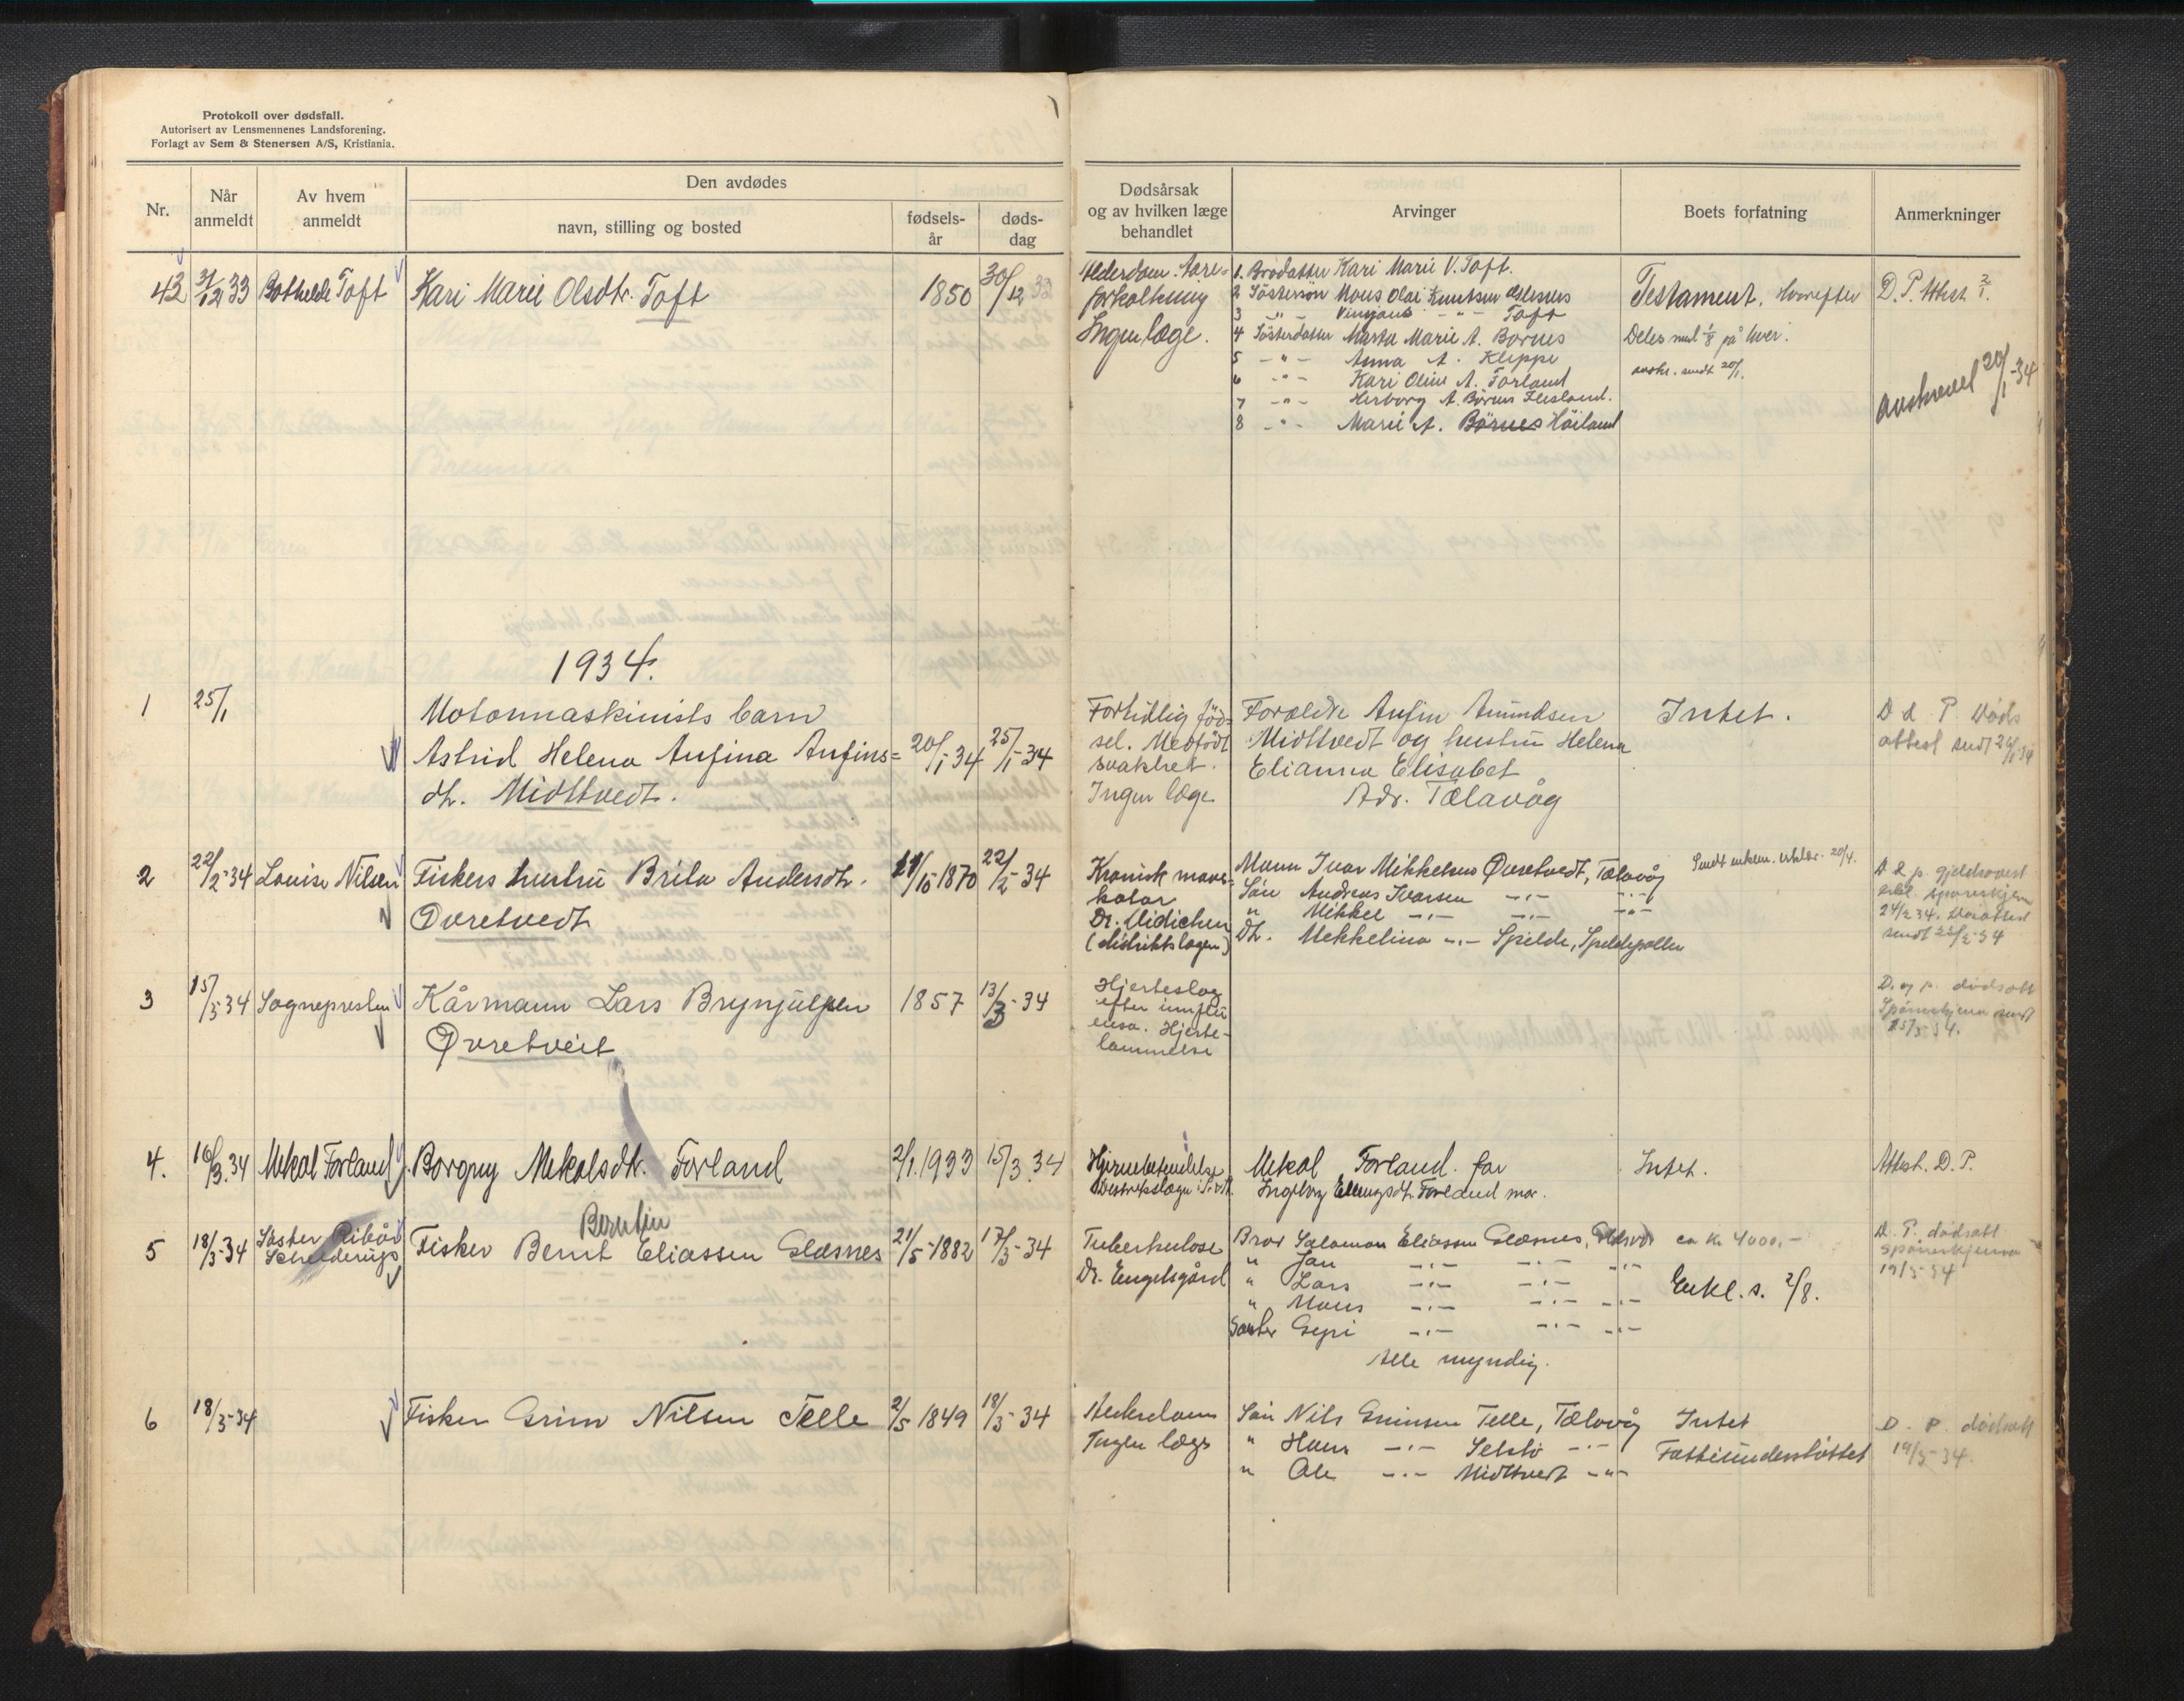 Protokoll over dødsfall.
Autorisert av Lensmennenes Landsforening.
Forlagt av Sem & Stenersen A/S, Kristiania.
Nr.
Når anmeldt
Av hvem anmeldt
Den avdødes
navn, stilling og bosted
fødsels-år
døds-dag
Dødsårsak og av hvilken læge behandlet
Arvinger
Boets forfatning
Anmerkninger
43 31/12 33 Bothilde Toft Kari Marie Olsdtr. Toft 1850 30/12 33
Alderdom. Åre-
forkalkning
Ingen læge.
1. Brodatter Kari Marie V. Toft.
2 Søstersøn Mons Olai Knutsen
3 -"- -"- Toft
4 Søsterdatter Marta Marie A. Bornes
5 -"- Anna A. Kleppe
6 -"- Kari Oline A. Forland
7 -"- Herborg A. Børnes Flesland.
8 -"- Marie A. Børnes Høiland
Testament. Hvorefter
Deles med 1/8 på hver.
sendt 20/1.
D. P. Attest 2/1.
avskrevet 20/1-34
1934.
1 25/1
Motormaskinists barn
Astrid Helena Anfina Anfins=
dtr. Midttvedt.
20/1-34 25/1-34
Fortidlig fød=
sel. Medfødt
svakhet.
Ingen læge
Foreldre Anfin Amundsen
Midttvedt og hustru Helena
Elianna Elisabet
Adr. Tælavåg
Intet.
D d. P. Døds
attest sendt 26/1-34
2 22/2-34 Louise Nilsen Fiskers hustru Brita Andersdtr.
Øvretvedt
/10 1870 22/2-34
Kronisk mave=
katar
Dr.
(distriktslægen)
Mann Ivar Mikkelsen Øvretvedt, Tælavåg
Søn Andreas Ivarsen -"- -"-
" Mikkel -"- -"- -"-
Dtr. Mikkelina -"- Spilde, Spildepollen
Sendt 20/4.
D d p.
24/2 34. Dødsattest
sendt 22/2-34
3 15/3-34 Sognepresten Kårmann Lars Brynjulfsen
Øvretveit
1857 13/3-34
Hjerteslag
efter influ
ensa. Hjerte-
lammelse
D. og p. dødsatt
Spørreskjema sendt
15/3-34.
4. 16/3.34 Mikal Forland Borgny Mikalsdtr. Forland 2/1.1933 15/3.34
Hjernebetendelse
Mikal Forland. far
Ingeborg Ellingsdtr. Forland mor.
Intet.
Attest. D. P.
5 18/3-34 Søster
Berntin
Fisker Bernt Eliassen Glesnes 21/5-1882 17/3-34
Tuberkulose
Dr. Engelsgård
Bror Salomon Eliassen Glesnes,
" Jan -"- -"- -"-
" Lars -"- -"-
" Mons -"- -"- -"-
Søster Guri -"- -"- -"-
Alle myndig.
ca kr 4000,-
Erkl. s. 2/8.
D. P. dødsatt
spørreskjema
19/3-34
6 18/3-34 Fisker Grim Nilsen Telle 2/5 1849 18/3-34
Alderdom
Ingen læge
Søn Nils Grimsen Telle, Tælavåg
" Hans -"- Selstø -"-
" Ole -"- Midttvedt -"-
Intet
Fattigunderstøttet
D. P. dødsatt
19/3-34.